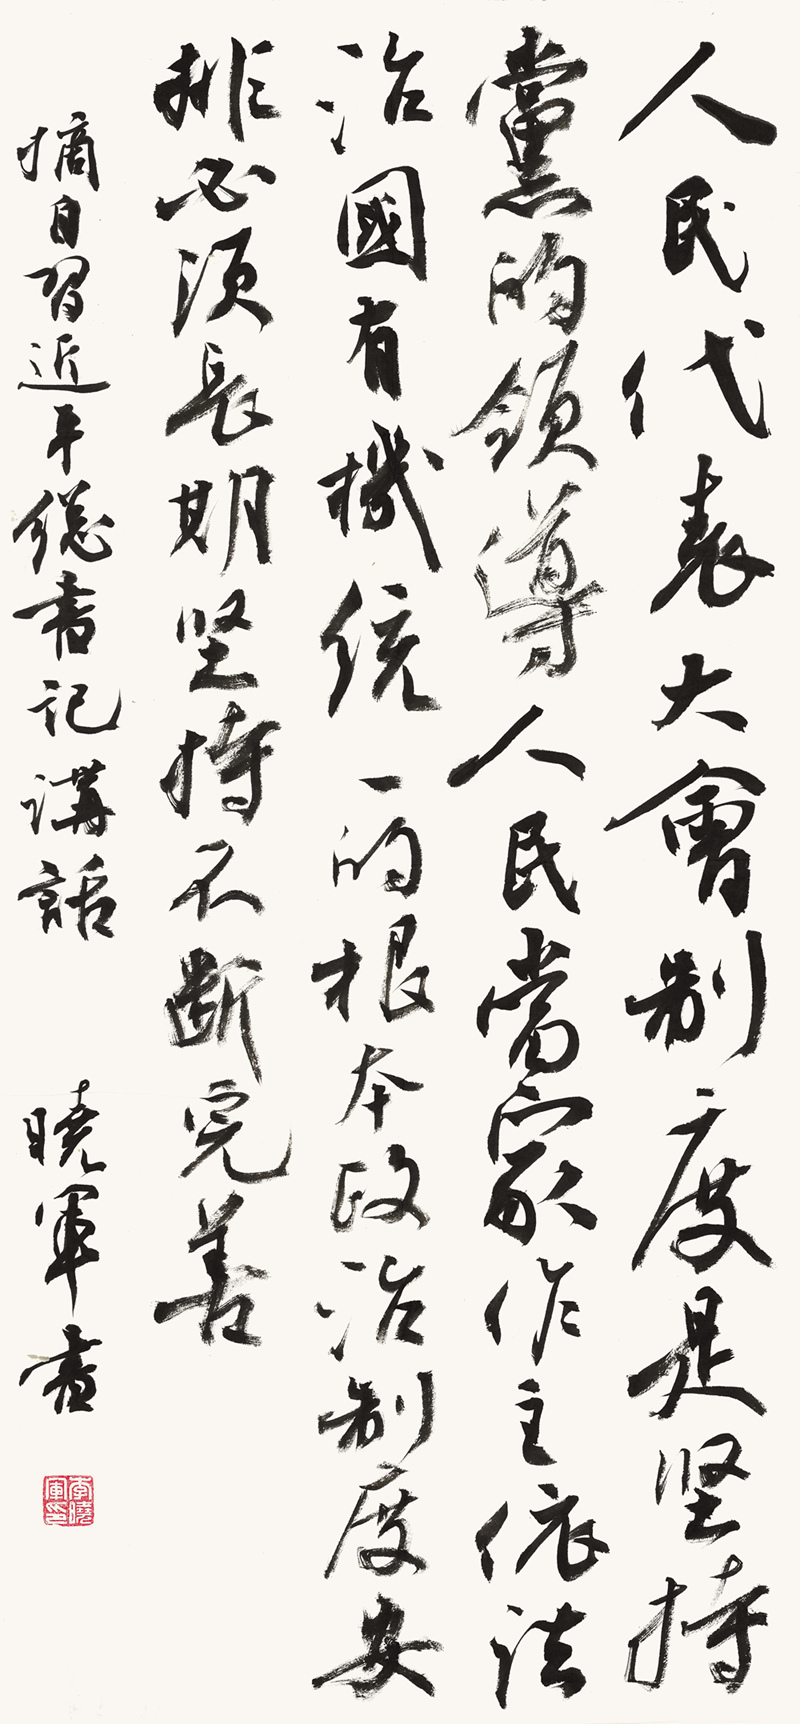 人民代表大會制度是坚持
黨的领導人民當家作主依法
治國有機统一的根本政治制度安
排必须長期坚持不断完善
摘自習近平總書记講話
曉軍書
李曉軍印